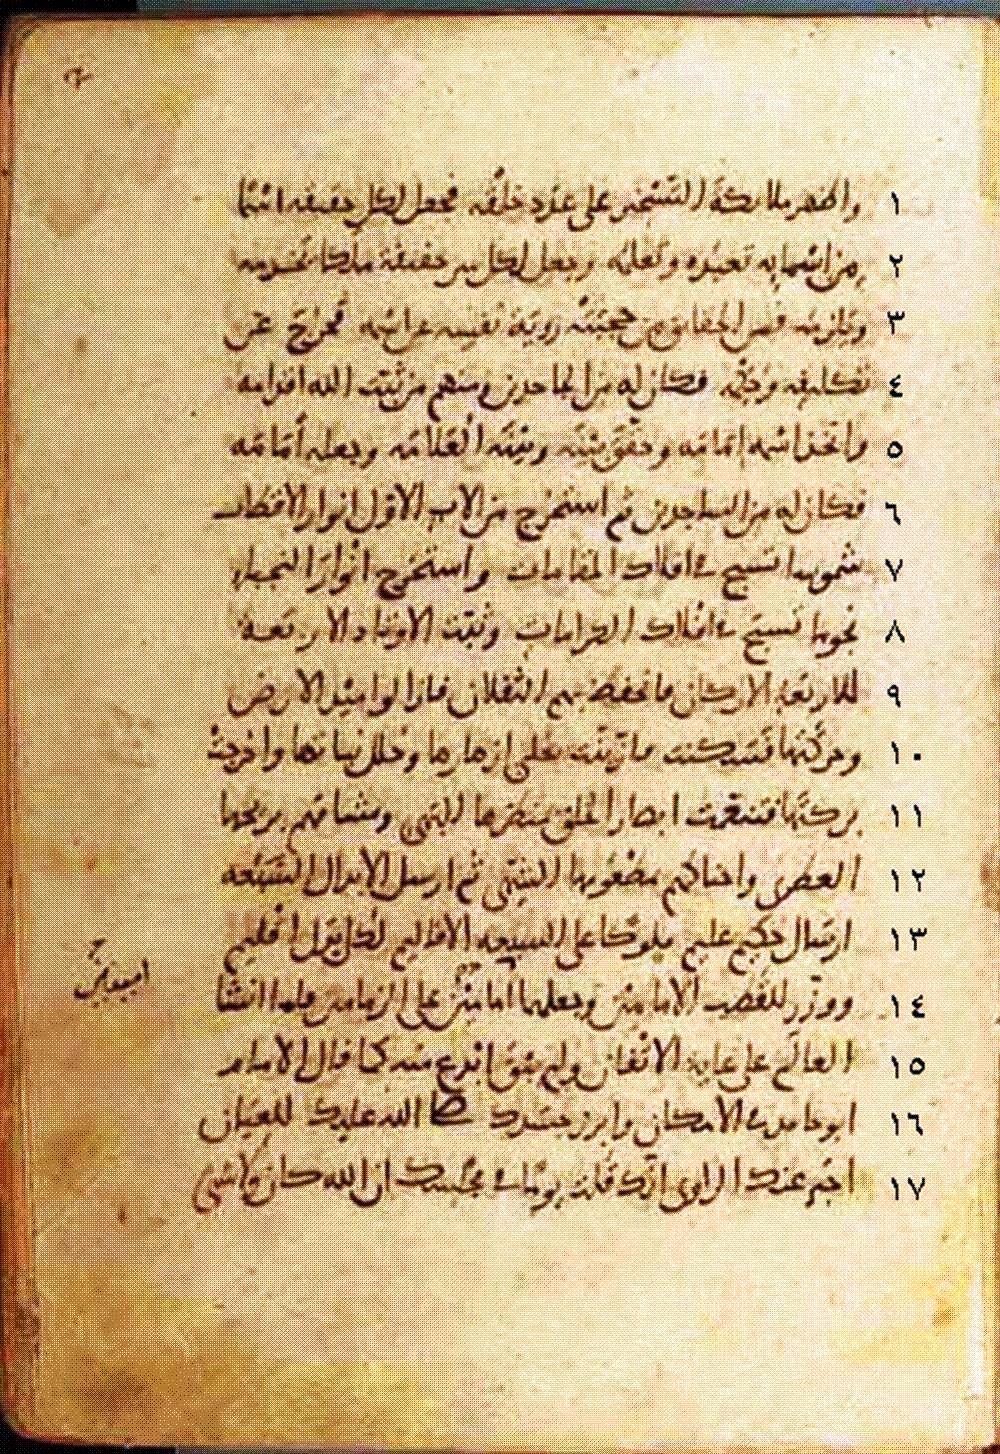 واظهر ملائكة التسخير على عدد خلقه فجعل لكل حقيقة اسما ١
من اسمايه تعبده وتعلمه وجعل لكل سر حقيقة ملكا يخدمه ٢
ويلزمه فمن الحقايق من حجبته روية نفسه عن اسمه فخرج عن ٣
تكليفه وحكمه فكان له من الجاحدين ومنهم من ثبت الله اقدامه ٤
واتخذ اسمه امامه وحقق بينه وبينه العلامه وجعله أمامه ٥
فكان له من الساجدين ثم استخرج من الاب الاول انوار الاقطاب ٦
شموسا تسبح في افلاك المقامات واستخرج انوار النجباء ٧
نجوما تسبح في افلاك الكرامات وثبت الاوتاد الاربعة ٨
للاربعة الاركان فانحفظ بهم الثقلان فازالوا ميد الارض ٩
وحركتها فسكنت فازينت بحلي ازهارها وحلل نباتها واخرجت ١٠
بركتها فتنعمت ابصار الخلق بمنظرها البهي ومشامهم بريحها ١١
العطري واحناكهم بمطعومها الشهي ثم ارسل الابدال السبعه ١٢
ارسال حكيم عليم ملوكا على السبعه الاقاليم لكل بدل اقليم ١٣
امينين
ووزر للقطب الامامين وجعلهما امامين على الزمامين فلما انشا ١٤
العالم على غاية الاتقان ولم يبق ابدع منه كما قال الامام ١٥
ابو حامد في الامكان وابرز جسدك صلى الله عليك للعيان ١٦
اخبر عنك الراوي انك قلت يوما في مجلسك ان الله كان ولا شي ١٧